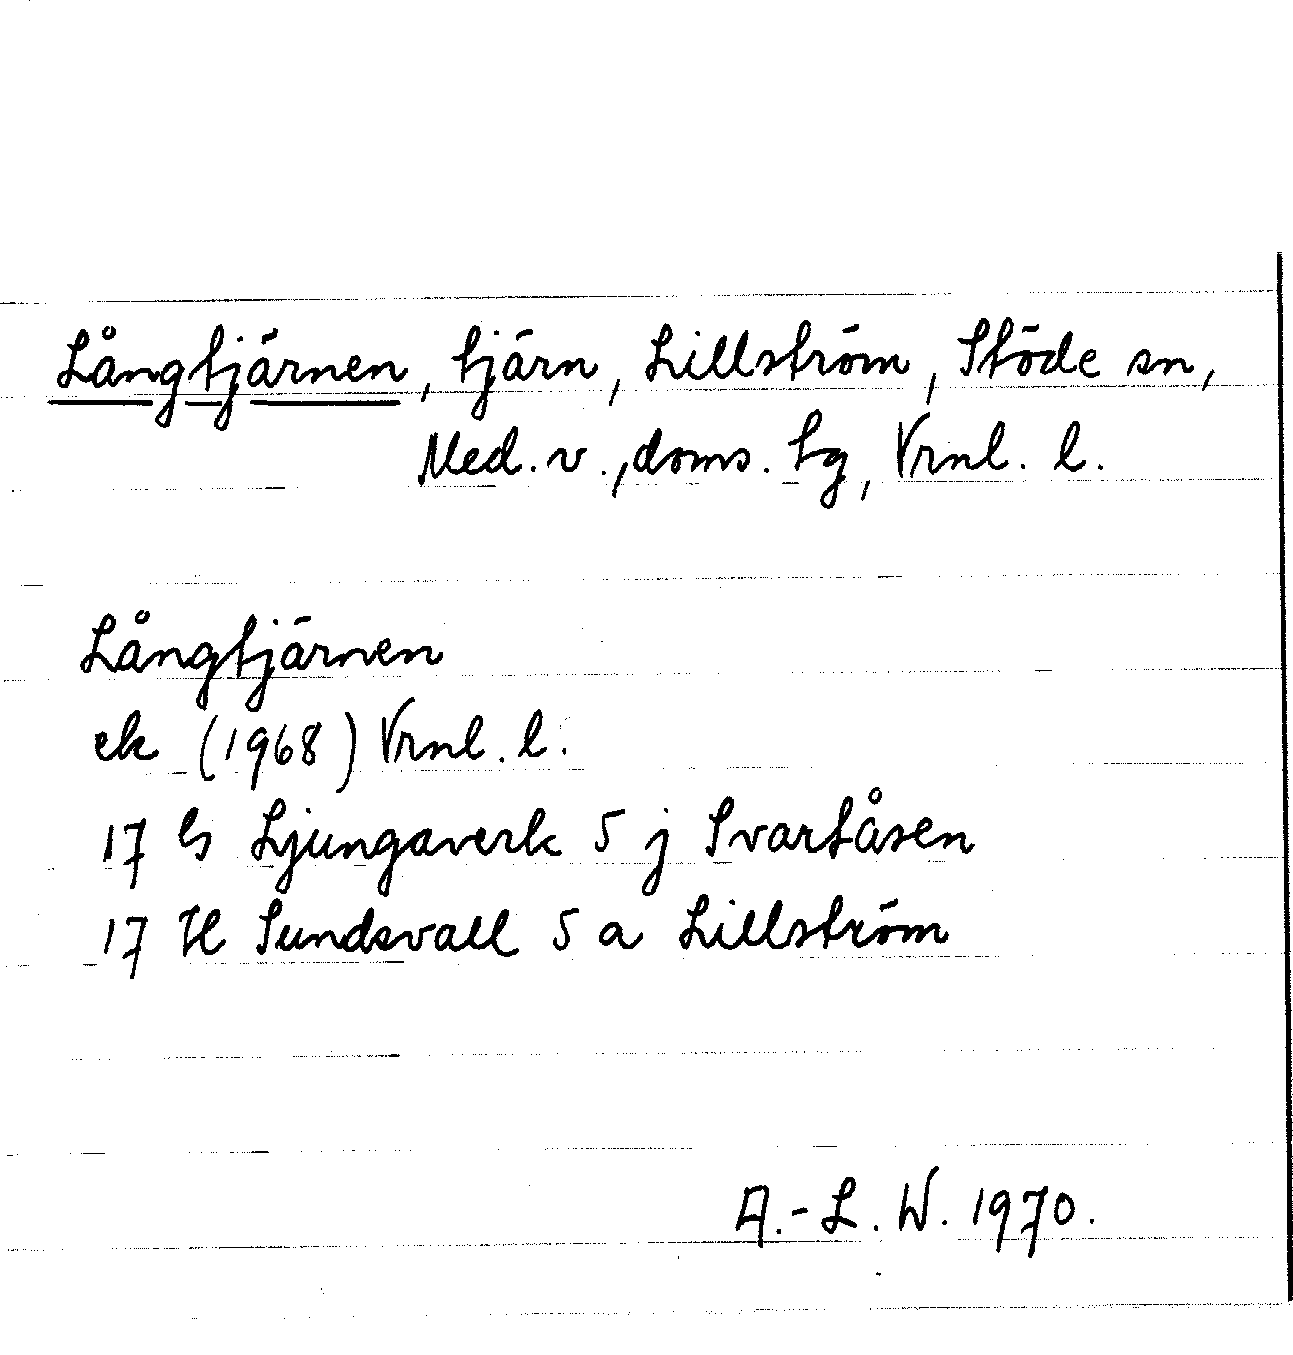 Långtjärnen, tjärn, Lillström, Stöde sn,
Med. v., doms. tg, Vrnl. l.
Långtjärnen
ek (1968) Vrnl. l.
17 G Ljungaverk 5 j Svartåsen
17 H Sundsvall 5 a Lillström
A.-L. W. 1970.